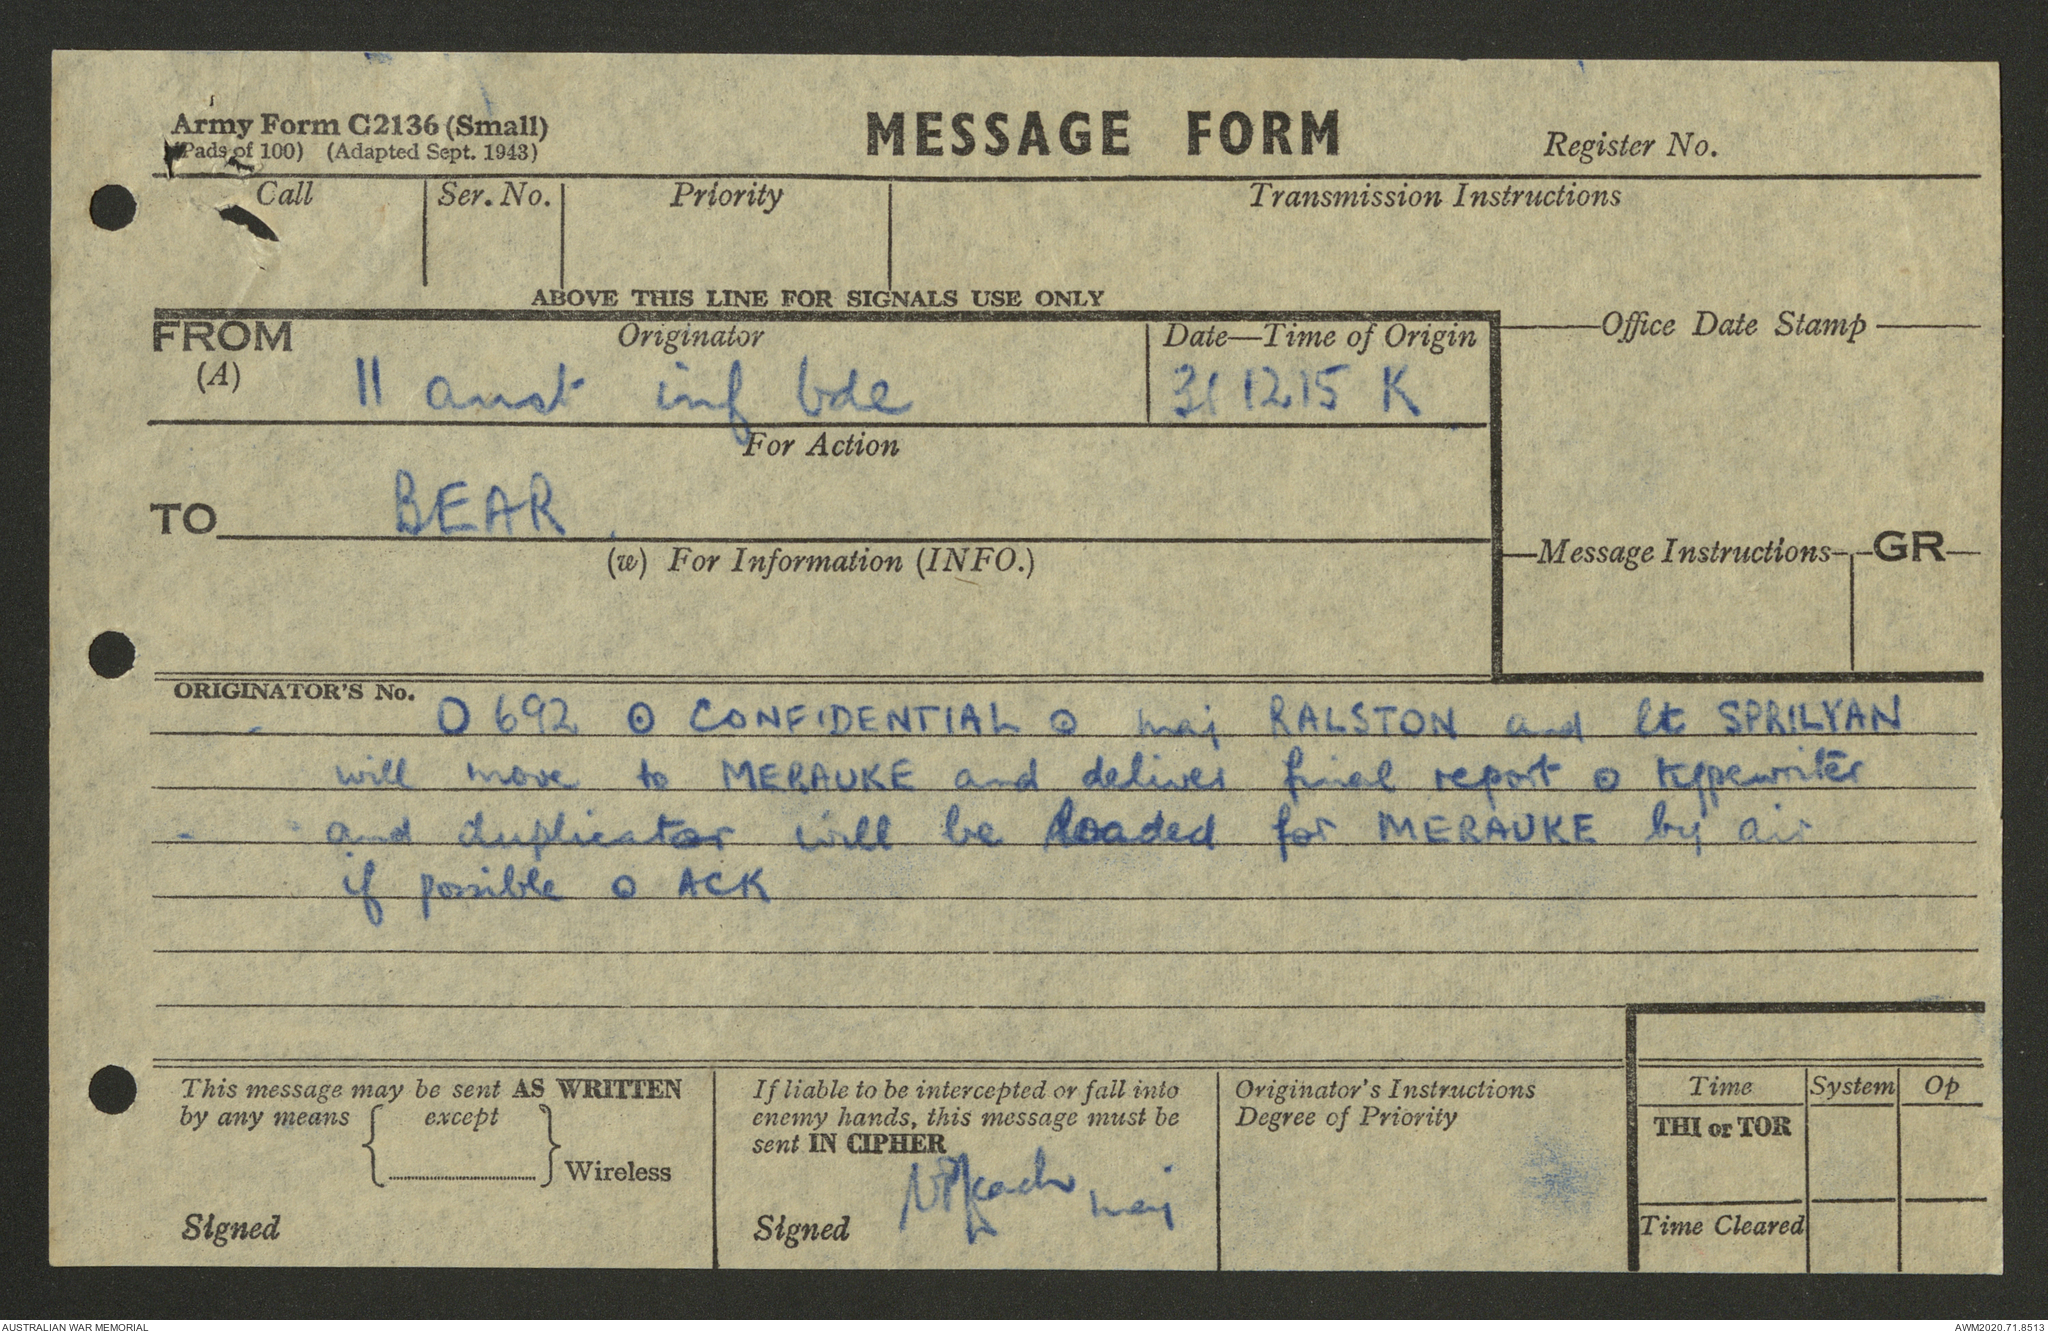 Army Form C2136 (Small)
(Pads of 100) (Adapted Sept. 1943)
MESSAGE FORM
Register No.
Call
Ser. No.
Priority
Transmission Instructions
ABOVE THIS LINE FOR SIGNALS USE ONLY
FROM
(A)
Originator
Date—Time of Origin
Office Date Stamp
11 aust inf bde
311215 K
For Action
TO
BEAR
(w) For Information (INFO.)
Message Instructions
GR
ORIGINATOR'S No.
O 692 ⊙ CONFIDENTIAL ⊙ maj RALSTON and lt SPRILYAN
will move to MERAUKE and deliver final report ⊙ typewriter
and duplicator will be loaded for MERAUKE by air
if possible ⊙ ACK
This message may be sent AS WRITTEN
by any means { except } Wireless
Signed
If liable to be intercepted or fall into
enemy hands, this message must be
sent IN CIPHER
Signed
maj
Originator's Instructions
Degree of Priority
Time
System
Op
THI or TOR
Time Cleared
AUSTRALIAN WAR MEMORIAL
AWM2020.71.8513